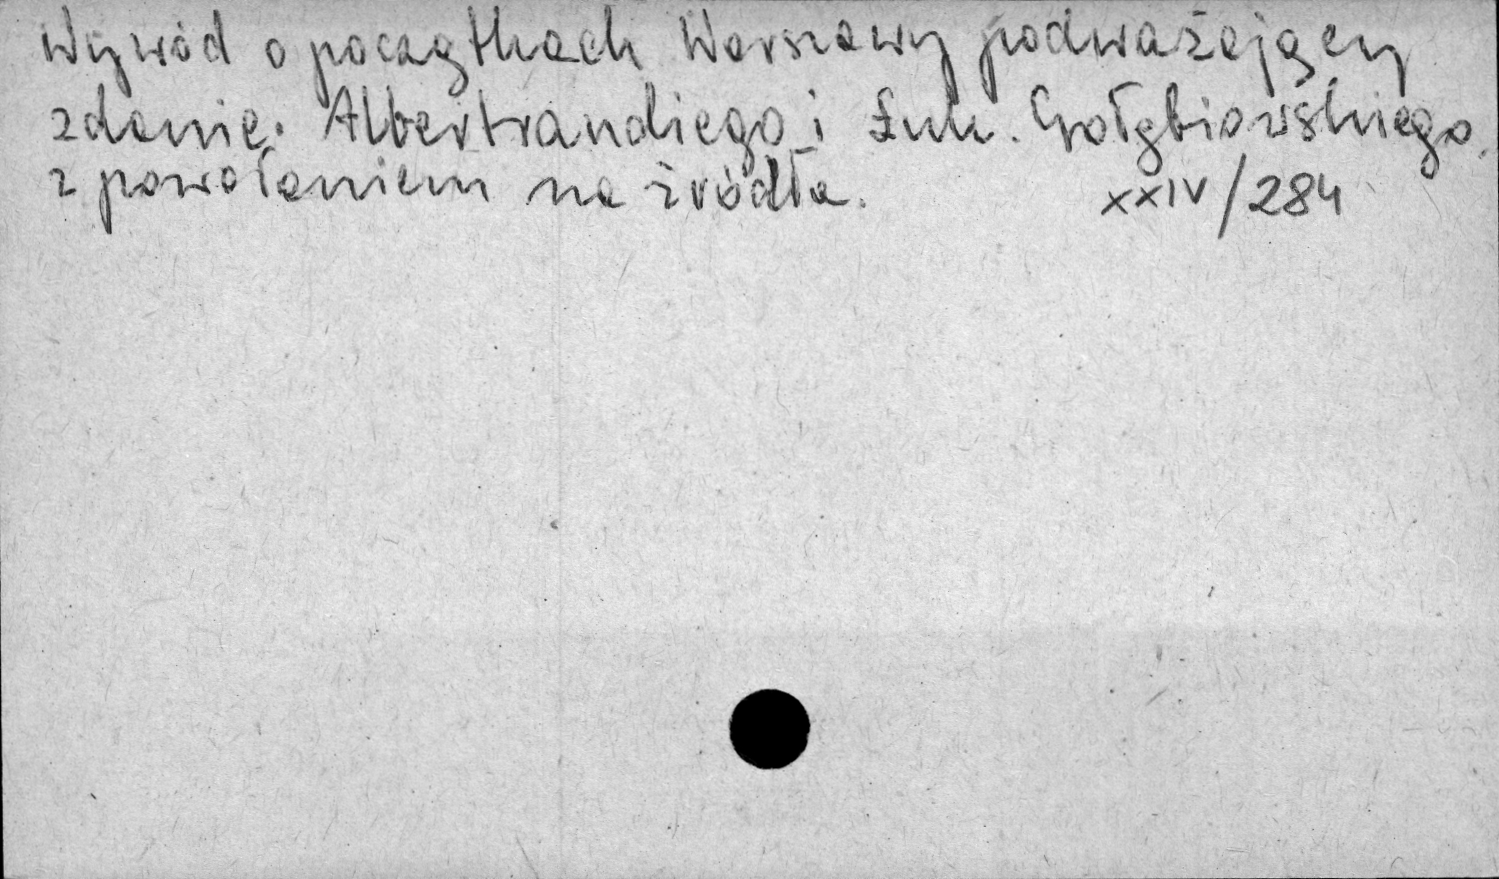 Wywód o początkach Warszawy podważający
zdanie. Albertrandiego i Łuk. Gołębiowskiego.
z powołaniem na źródła. XXIV/284